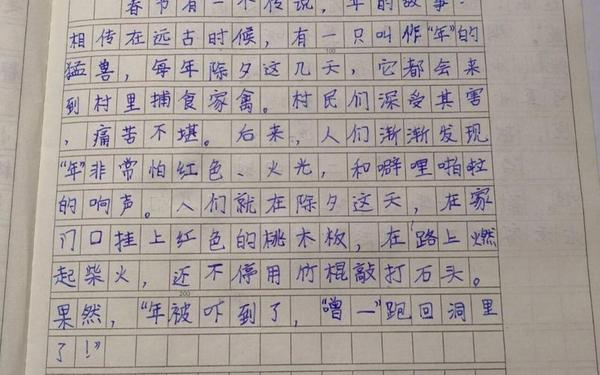 春节有一个传说，年的故事：
相传在远古时候，有一只叫作“年”的
猛兽，每年除夕这几天，它都会来
100
到村里捕食家禽。村民们深受其害
，痛苦不堪。后来，人们渐渐发现
“年”非常怕红色、火光，和噼里啪啦
的响声。人们就在除夕这天，在家
门口挂上红色的桃木板，在路上燃
起柴火，还不停用竹棍敲打石头。
200
果然，“年被吓到了，“噌一”跑回洞里
了！”